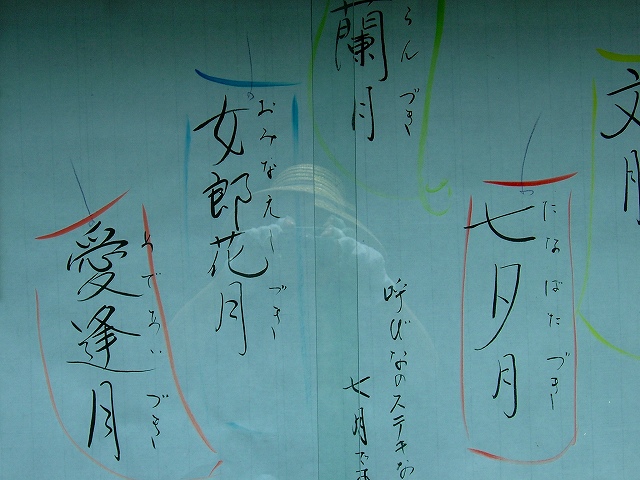 文月
たなばたづき
七夕月
らんづき
蘭月
呼びなのステキな
七月
おみなえしづき
女郎花月
めであいづき
愛逢月